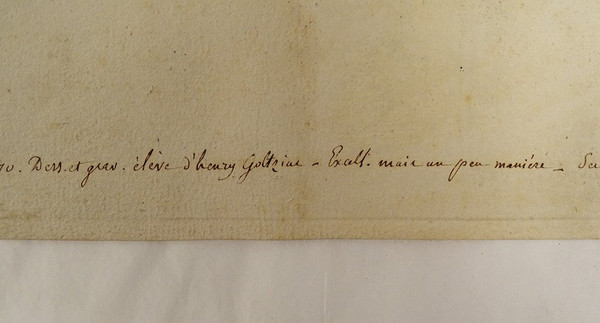 . Dess. et grav. élève d'henry Goltziuc - Excell. mais un peu maniéré -